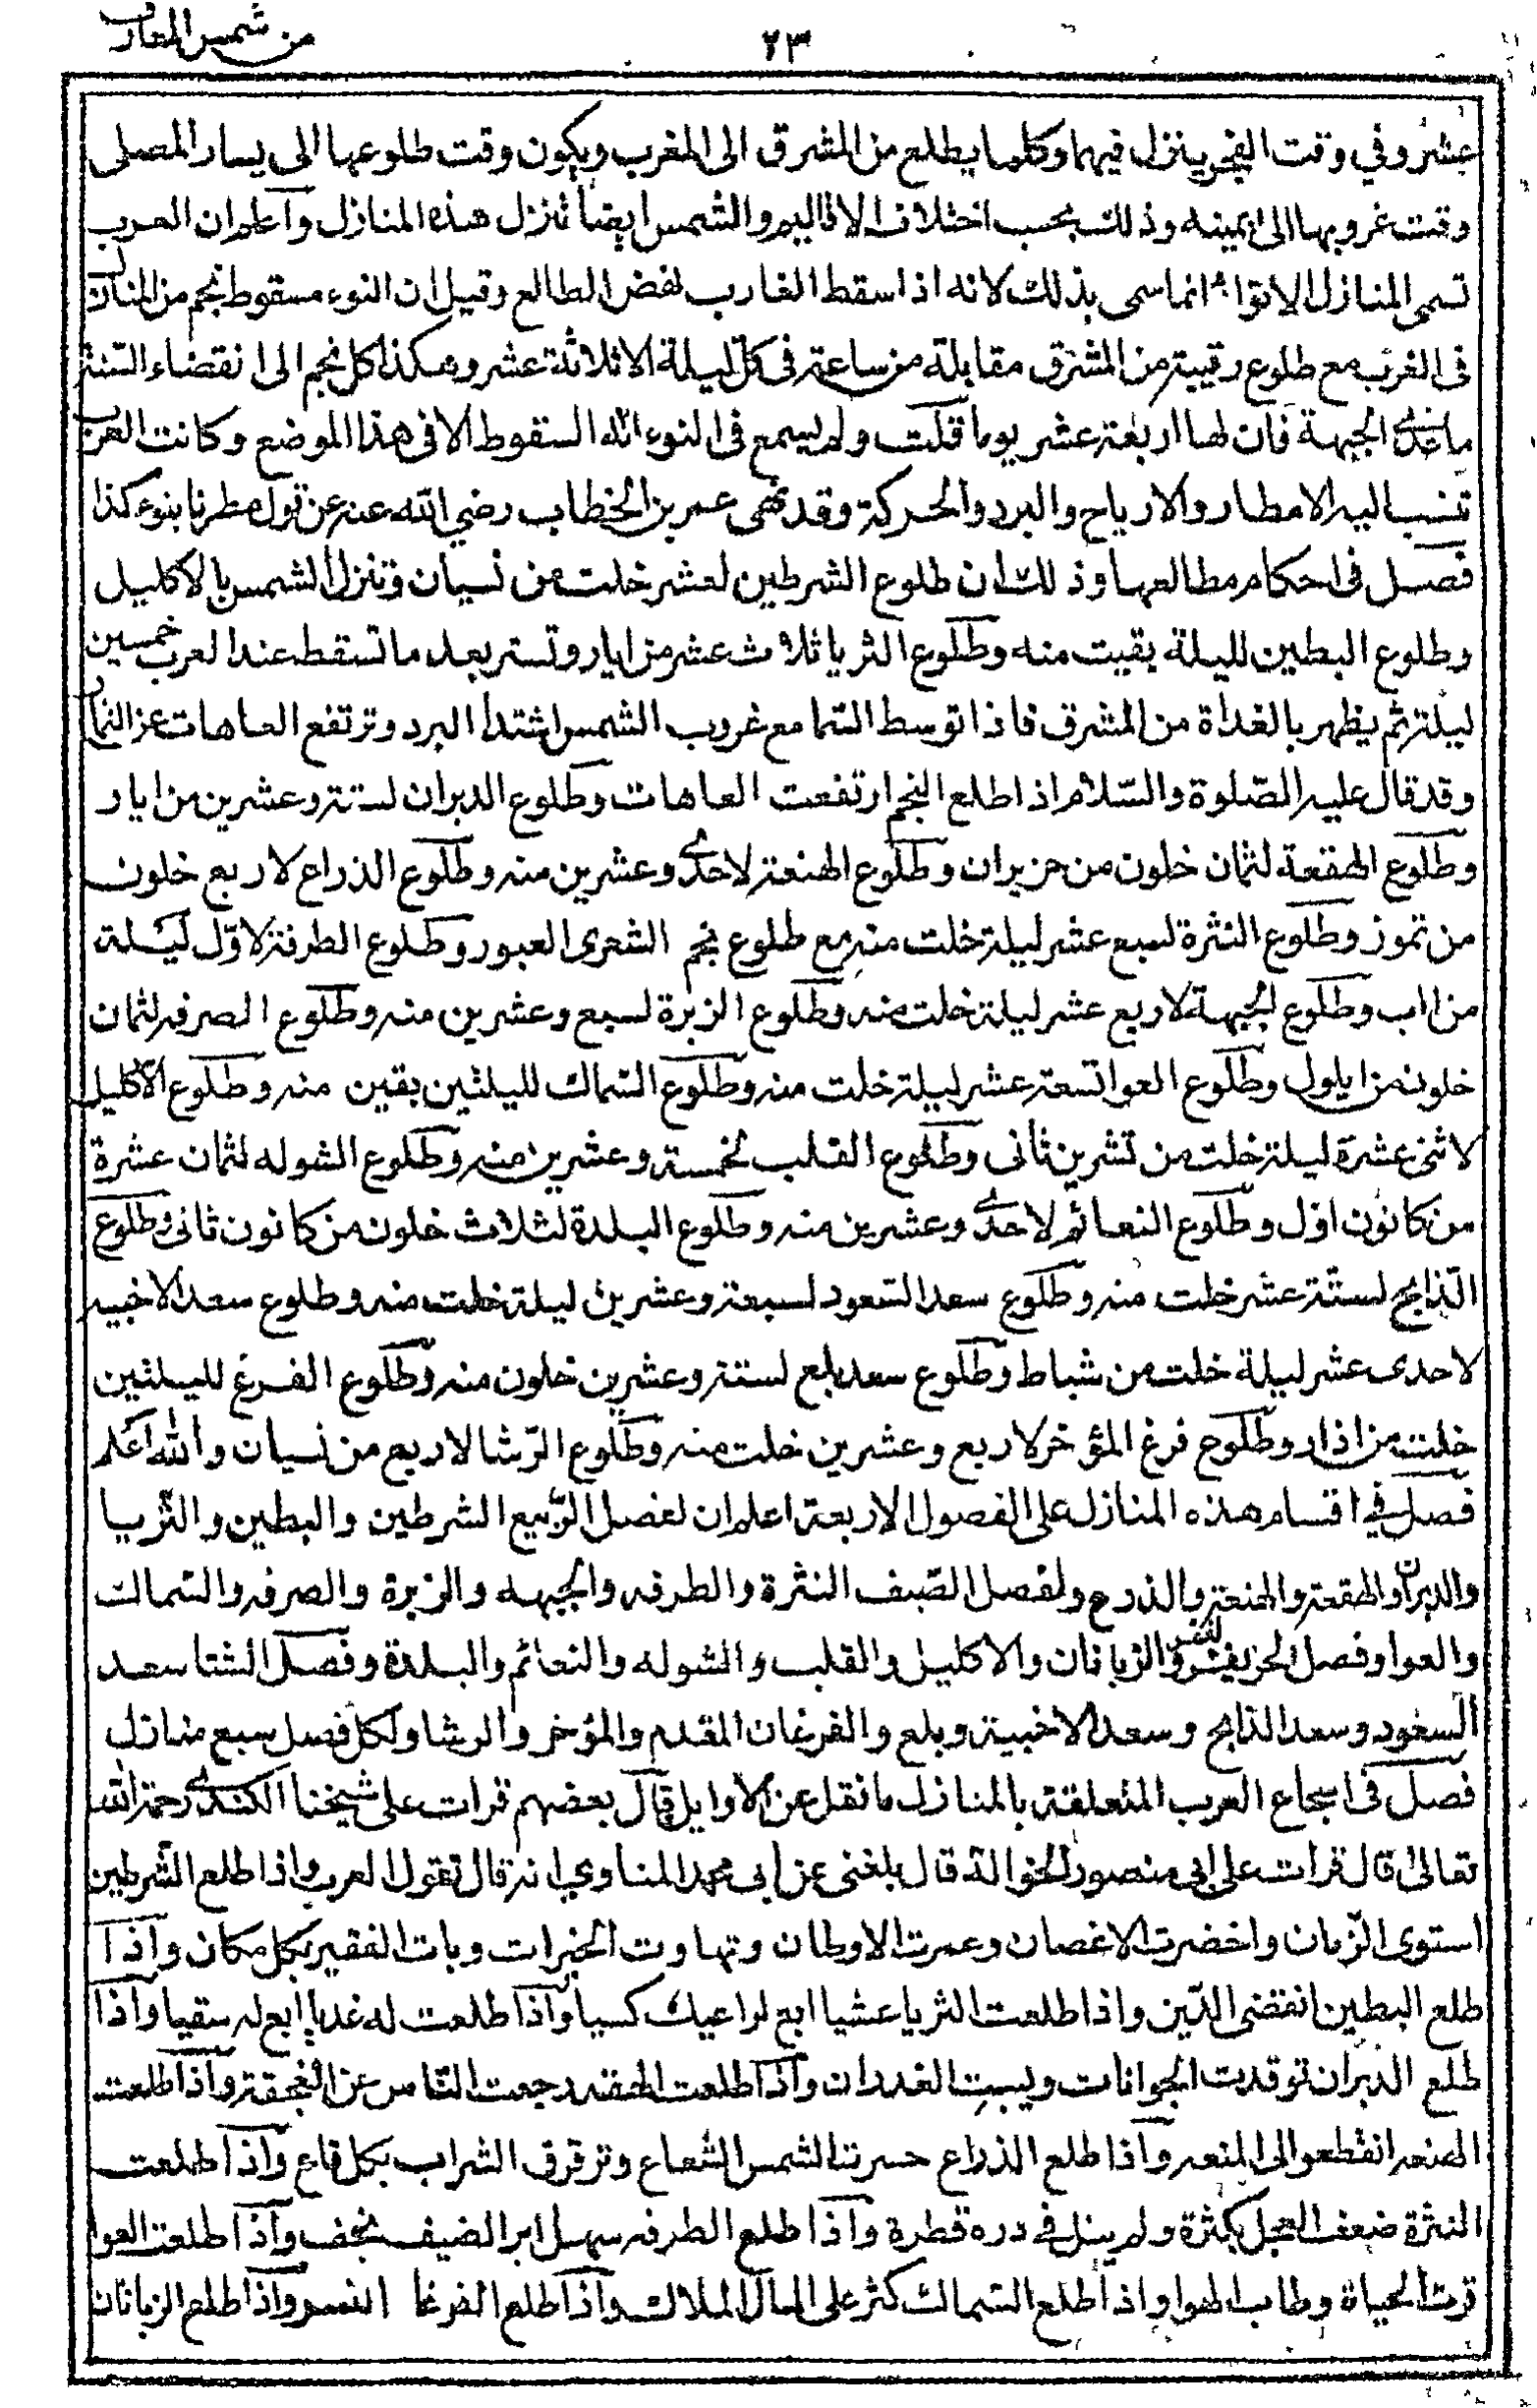 من شمس المعارف
٢٣
عشر وفي وقت الفجر ينزل فيهما وكلما يطلع من المشرق الى المغرب ويكون وقت طلوعها الى يسار المصلى
وقت غروبها الى يمينه وذلك بحسب اختلاف الاقاليم والشمس ايضا تنزل هذه المنازل واعلم ان العرب
تسمى المنازل الانواء انما سمى بذلك لانه اذا سقط الغارب لفض الطالع وقيل ان النوء سقوط نجم من المنازل
فى الغرب مع طلوع رقيبة من المشرق مقابلة من ساعته فى كل ليلة الا ثلاثة عشر وهكذا كل نجم الى انقضاء السنة
ما عدى الجبهة فان لها اربعة عشر يوما قلت ولم يسمع فى النوء انه السقوط الا فى هذا الموضع وكانت العرب
تنسب اليه الامطار والارياح والبرد والحركة وقد نهى عمر بن الخطاب رضي الله عنه عن قول مطرنا بنوء كذا
فصل فى احكام مطالعها وذلك ان طلوع الشرطين لعشر خلت من نسيان وتنزل الشمس بالاكليل
وطلوع البطين لليلة بقيت منه وطلوع الثريا ثلاث عشر من ايار وتستر بعد ما تسقط عند العرب خمسين
ليلة ثم يظهر بالغداة من المشرق فاذا توسط السما مع غروب الشمس اشتدا البرد وترتفع العاهات عن الثمار
وقد قال عليه الصلوة والسلام اذا طلع النجم ارتفعت العاهات وطلوع الدبران لستة وعشرين من ايار
وطلوع الهقعة لثمان خلون من حزيران وطلوع الهنعة لاحدى وعشرين منه وطلوع الذراع لاربع خلون
من تموز وطلوع النثرة لسبع عشر ليلة خلت منه مع طلوع نجم الشعرى العبور وطلوع الطرفة لاول ليلة
من ااب وطلوع الجبهة لاربع عشر ليلة خلت منه وطلوع الزبرة لسبع وعشرين منه وطلوع الصرفه لثمان
خلون من ايلول وطلوع العوا تسعة عشر ليلة خلت منه وطلوع السماك لليلتين بقين منه وطلوع الاكليل
لاثنى عشرة ليلة خلت من تشرين ثانى وطلوع القلب لخمسة وعشرين منه وطلوع الشوله لثمان عشرة
من كانون اول وطلوع النعائم لاحدى وعشرين منه وطلوع البلدة لثلاث خلون من كانون ثانى وطلوع
الذابح لستة عشر خلت منه وطلوع سعد السعود لسبعة وعشرين ليلة خلت منه وطلوع سعد الاخبيه
لاحدى عشر ليلة خلت من شباط وطلوع سعد بلع لستة وعشرين خلون منه وطلوع الفرغ لليلتين
خلت من اذار وطلوع فرغ المؤخر لاربع وعشرين خلت منه وطلوع الرشا لاربع من نسيان والله اعلم
فصل في اقسام هذه المنازل على الفصول الاربعة اعلم ان لفصل الربيع الشرطين والبطين والثريا
والدبران والهقعة والهنعة والذرع ولفصل الصيف النثرة والطرفه والجبهه والزبرة والصرفه والسماك
والعوا وفصل الخريف والزبانان والاكليل والقلب والشوله والنعائم والبلدة وفصل الشتا سعد
السعود وسعد الذابح وسعد الاخبية وبلع والفرغان المقدم والمؤخر والرشا ولكل فصل سبع منازل
فصل فى اسجاع العرب المتعلقة بالمنازل ما نقل عن الاوايل قال بعضهم قرات على شيخنا الكندى رحمة الله
تعالى قال قرات على ابى منصور قال بلغنى عن ابى محمد المناوي انه قال تقول العرب اذا طلع الشرطين
استوى الزمان واخضرت الاغصان وعمرت الاوطان وتهاوت الخيرات وبات الفقير بكل مكان واذا
طلع البطين انقضى الدين واذا طلعت الثريا عشيا ابع لراعيك كسيا واذا طلعت له غديا ابع له سقيا واذا
طلع الدبران توقدت الجوانات ويبست الغدران واذا طلعت الهقعه رجعت الناس عن واذا طلعت
الهنعه انقطعوا الى المنعه واذا طلع الذراع حسرت الشمس الشعاع وترقرق الشراب بكل قاع واذا طلعت
النثرة ضعف بكثرة ولم ينل في دره قطرة واذا طلع الطرفه سهل امر الضيف واذا طلعت العوا
قرت الحياة وطاب الهوا واذا طلع السماك كثر على المال الملاك واذا طلع الفرغا واذا طلع الزبانان